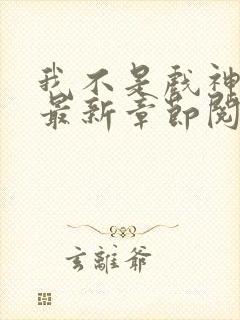 我不是戲神
最新章節閱
玄離爺